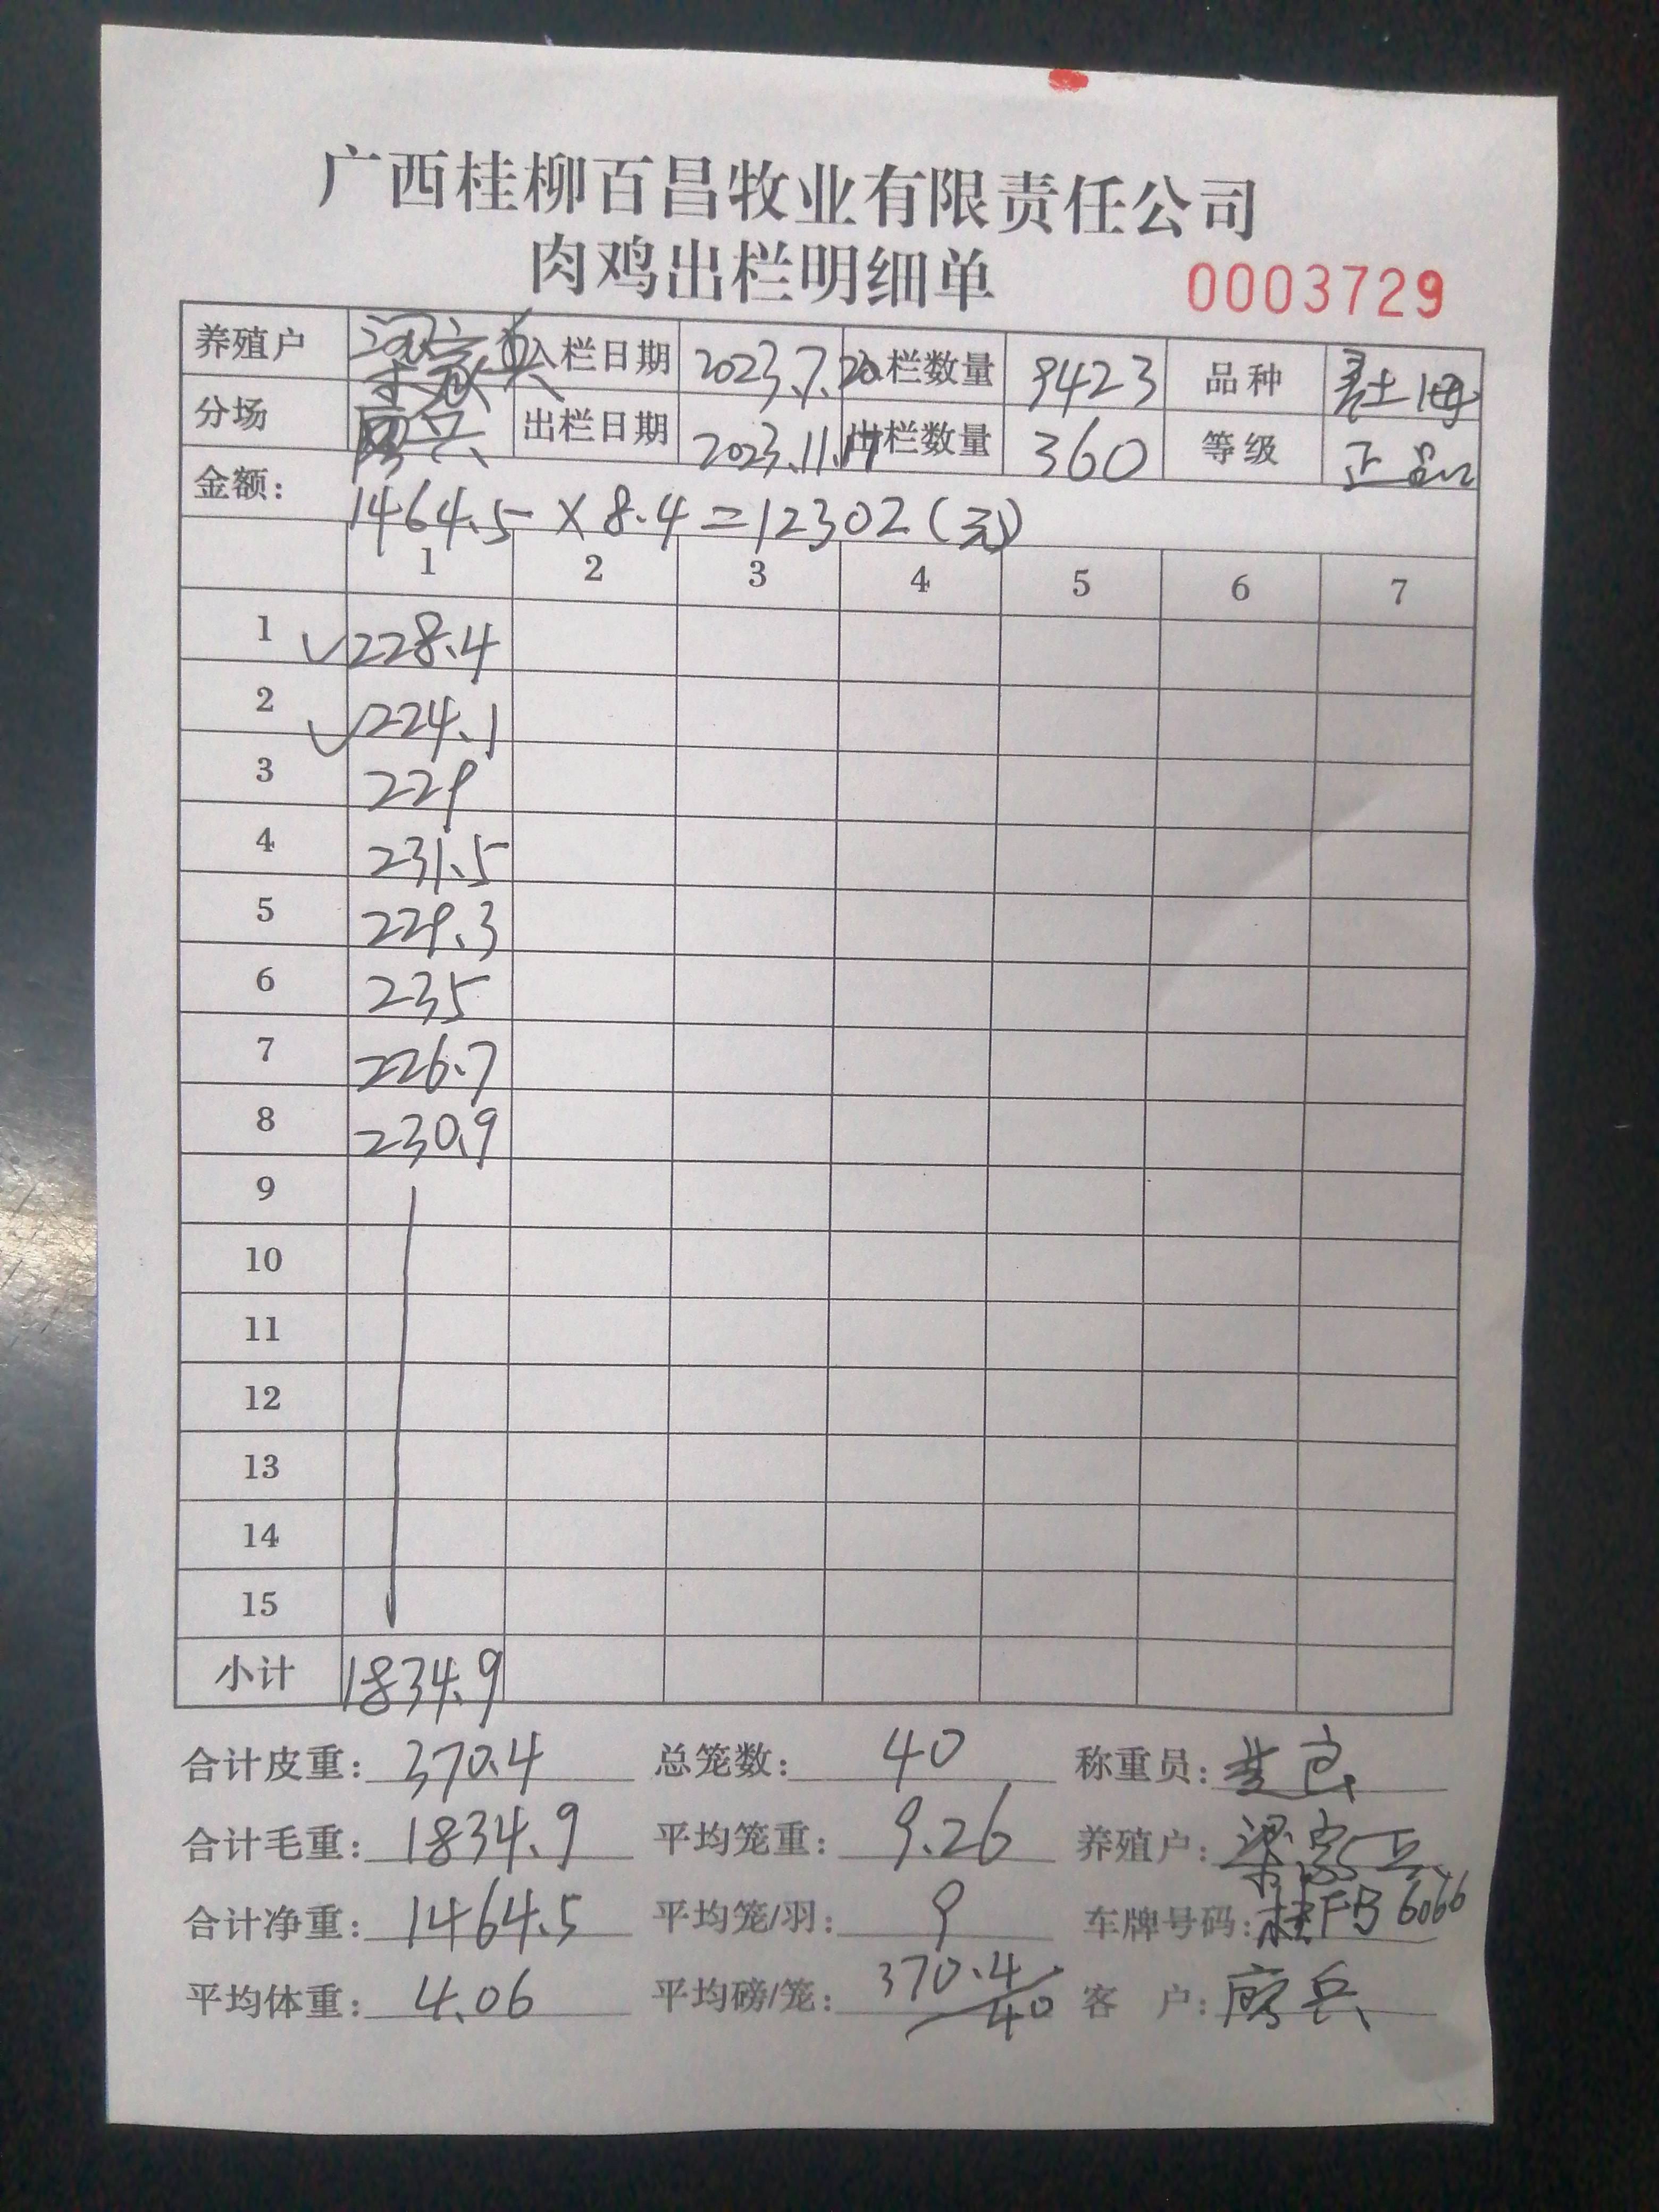 广西桂柳百昌牧业有限责任公司
肉鸡出栏明细单 0003729
养殖户 入栏日期 2023.7.20 入栏数量 9423 品种 土
分场 廖兵 出栏日期 2023.11.17 出栏数量 360 等级 正品
金额: 1464.5×8.4=12302(元)
1 2 3 4 5 6 7
1 ✓228.4
2 ✓224.1
3 229
4 231.5
5 229.3
6 235
7 226.7
8 230.9
9
10
11
12
13
14
15
小计 1834.9
合计皮重: 370.4 总笼数: 40 称重员:
合计毛重: 1834.9 平均笼重: 9.26 养殖户: 梁家兵
合计净重: 1464.5 平均笼/羽: 9 车牌号码: 桂FB6066
平均体重: 4.06 平均磅/笼: 370.4/40 客 户: 廖兵